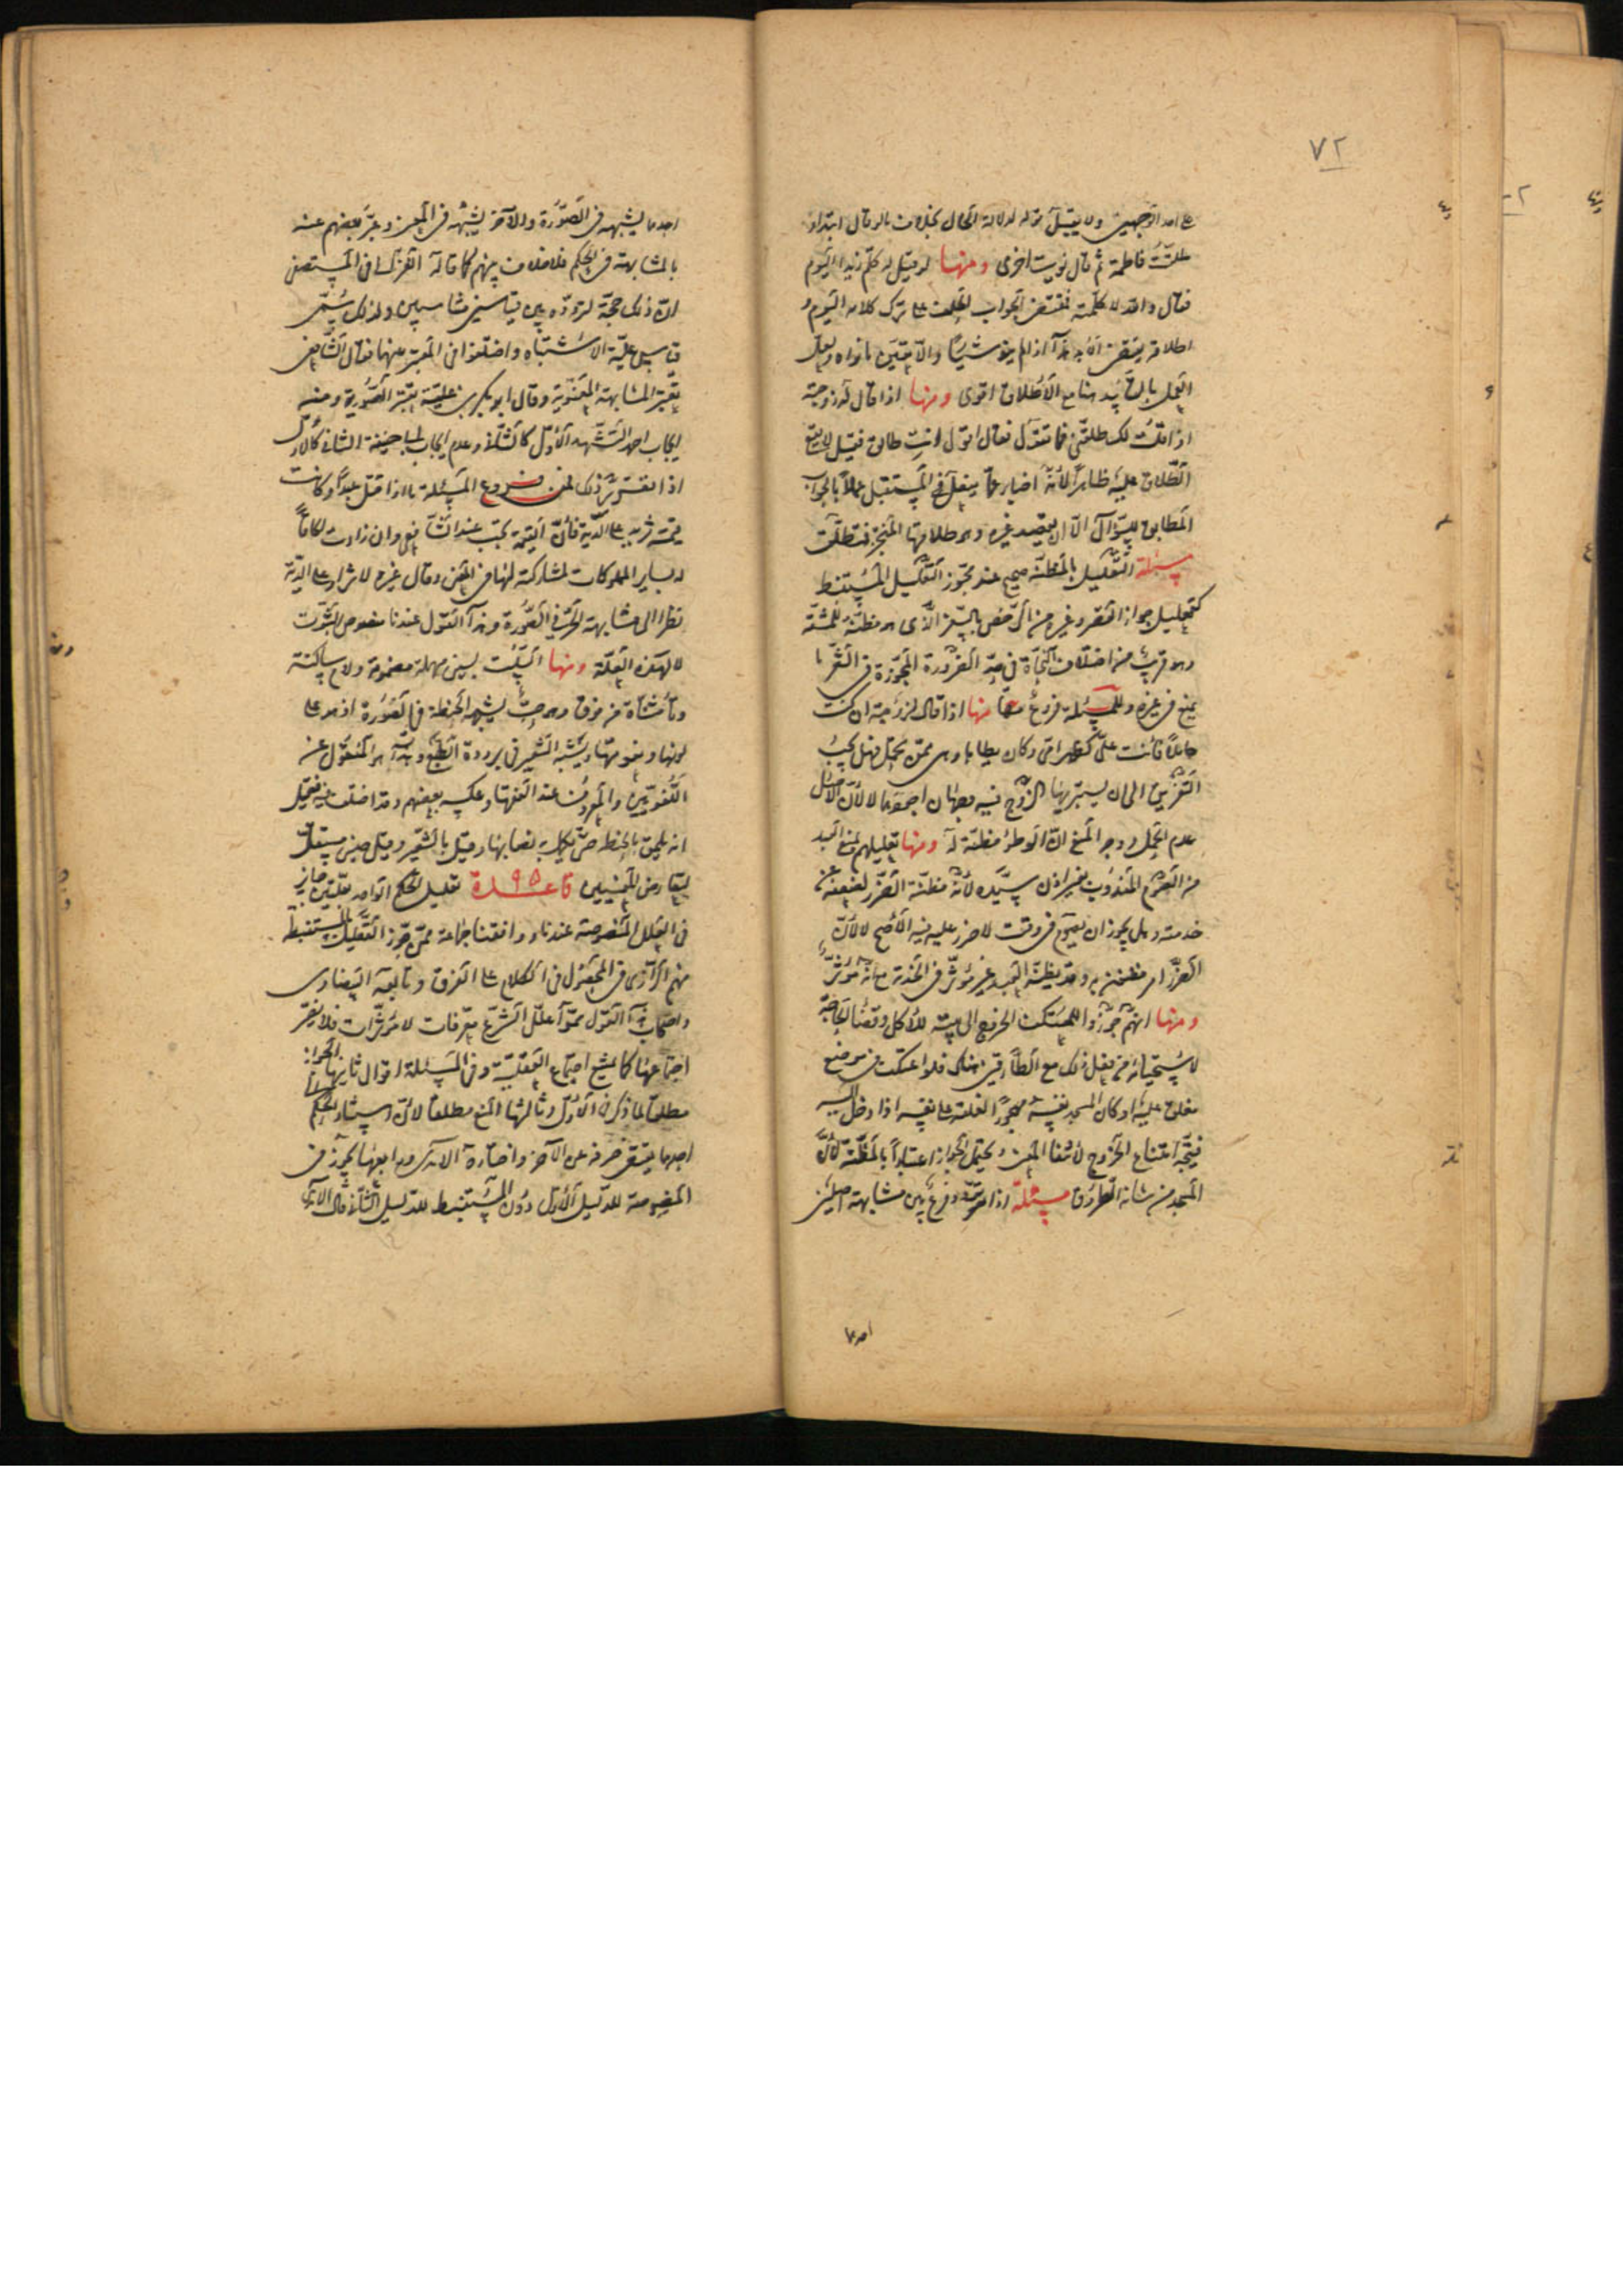 ٧٢
على احد الوجهين ولا يقبل قوله لدلالة الحال بخلاف ما لو قال ابتداء
طلقت فاطمة ثم قال نويت اخرى ومنها لو قيل له كلم زيدا اليوم
فقال والله لا كلمته فمقتضى الجواب الحلف على ترك كلامه اليوم و
اطلاقه يقتضى الابد هذا اذا لم ينو شيئا والا تعين ما نواه ولعل
العمل بالتأبيد هنا مع الاطلاق اقوى ومنها اذا قال له زوجته
اذا قلت لك طلقنى فما تقول فقال اقول انت طالق فقيل لا يقع
الطلاق عليه ظاهرا لأنه اخبار عما يفعل فى المستقبل عملا بالجواب
المطابق للسؤال الا ان يقصد غيره وهو طلاقها المنجز فتطلق
مسئلة التعليل بالمظنة صحيح عند مجوز التعليل المستنبط
كتعليل جواز القصر وغيره من الرخص بالسفر الذى هو مظنة للمشقة
وهو قريب من اختلاف النحاة فى حد الضرورة المجوزة فى الشعر ما
يمتنع فى غيره وللمسئلة فروع منها اذا قال لزوجته ان كنت
حاملا فأنت على كظهر امى وكان يطأها وهى ممن تحبل فهل يجب
التفريق الى ان يستبريها الزوج فيه وجهان اصحهما لا لأن الأصل
عدم الحمل ووجه المنع ان الوطء مظنة له ومنها تعليلهم لمنع العبد
من الصوم المندوب بغير اذن سيده لأنه مظنة الضرر لضعفه عن
خدمته وهل يجوز ان يصوم فى وقت لا ضرر عليه فيه الأصح لا لأن
الضرر امر مظنون به وقد يظنه العبد غير مؤثر فى الخدمة مع انه مؤثر
ومنها انهم جوزوا للمعتكف الخروج الى بيته للأكل وقضاء الحاجة
لاستحيائه من فعل ذلك مع الطارقين هناك فلو اعتكف فى موضع
مغلق عليه او كان المسجد نفسه مهجورا لغلقه على نفسه اذا دخل اليه
فيتجه امتناع الخروج لانتفاء المعنى ويحتمل الجواز اعتبارا بالمظنة لأن
المسجد من شأنه الطروق مسئلة اذا تردد فرع بين مشابهة اصلين
احدهما
احدهما يشبهه فى الصورة والآخر يشبهه فى المعنى وعبر بعضهم عنه
بالمشابهة فى الحكم فلا خلاف بينهم كما قاله الغزالى فى المستصفى
ان ذلك حجة لتردده بين قياسين متناسبين ولذلك يسمى
قياس علية الاشتباه واختلفوا فى المعتبر منهما فقال الشافعى
تعتبر المشابهة المعنوية وقال ابو بكر بن علية تعتبر الصورية ومنه
ايجاب احد التشهد الأول كالثانى وعدم ايجاب ابى حنيفة الثانى كالأول
اذا تقرر ذلك فمن فروع المسئلة ما اذا قتل عبدا وكانت
قيمته تزيد على الدية فأن القيمة تجب عند الشافعى وان زادت الحاقا
له بساير المملوكات لمشاركته لها فى المعنى وقال غيره لا تزاد على الدية
نظرا الى مشابهته للحر فى الصورة وهذا القول عندنا منصوص الثبوت
لا لهذه العلة ومنها السلت بسين مهملة مضمومة ولام ساكنة
وتاء مثناة من فوق وهو حب يشبه الحنطة فى الصورة اذ هو على
لونها ونعومتها ويشبه الشعير فى برودة الطبع وهذا هو المنقول عن
اللغويين والمعروف عند الفقهاء وعكسه بعضهم وقد اختلف فيه فقيل
انه يلحق بالحنطة حتى يكمل به نصابها وقيل بالشعير وقيل جنس مستقل
لتعارض المعنيين قاعدة ٩٥ تعليل الحكم الواحد بعلتين جايز
فى العلل المنصوصة عندنا ووافقنا جماعة ممن جوز التعليل بالمستنبطة
منهم الرازى فى المحصول فى الكلام على الفرق وتابعه البيضاوى
واصحاب هذا القول سموا علل الشرع معرفات لا مؤثرات فلا يضر
اجتماعها كما يمتنع اجتماع العقلية وفى المسئلة اقوال ثانيها الجواز
مطلقا لما ذكر فى الأول وثالثها المنع مطلقا لأن اسناد الحكم الى
احدهما يقتضى صرفه عن الآخر واختاره الآمدى ورابعها يجوز فى
المنصوصة للدليل الأول دون المستنبط للدليل الثانى قال الآمدى